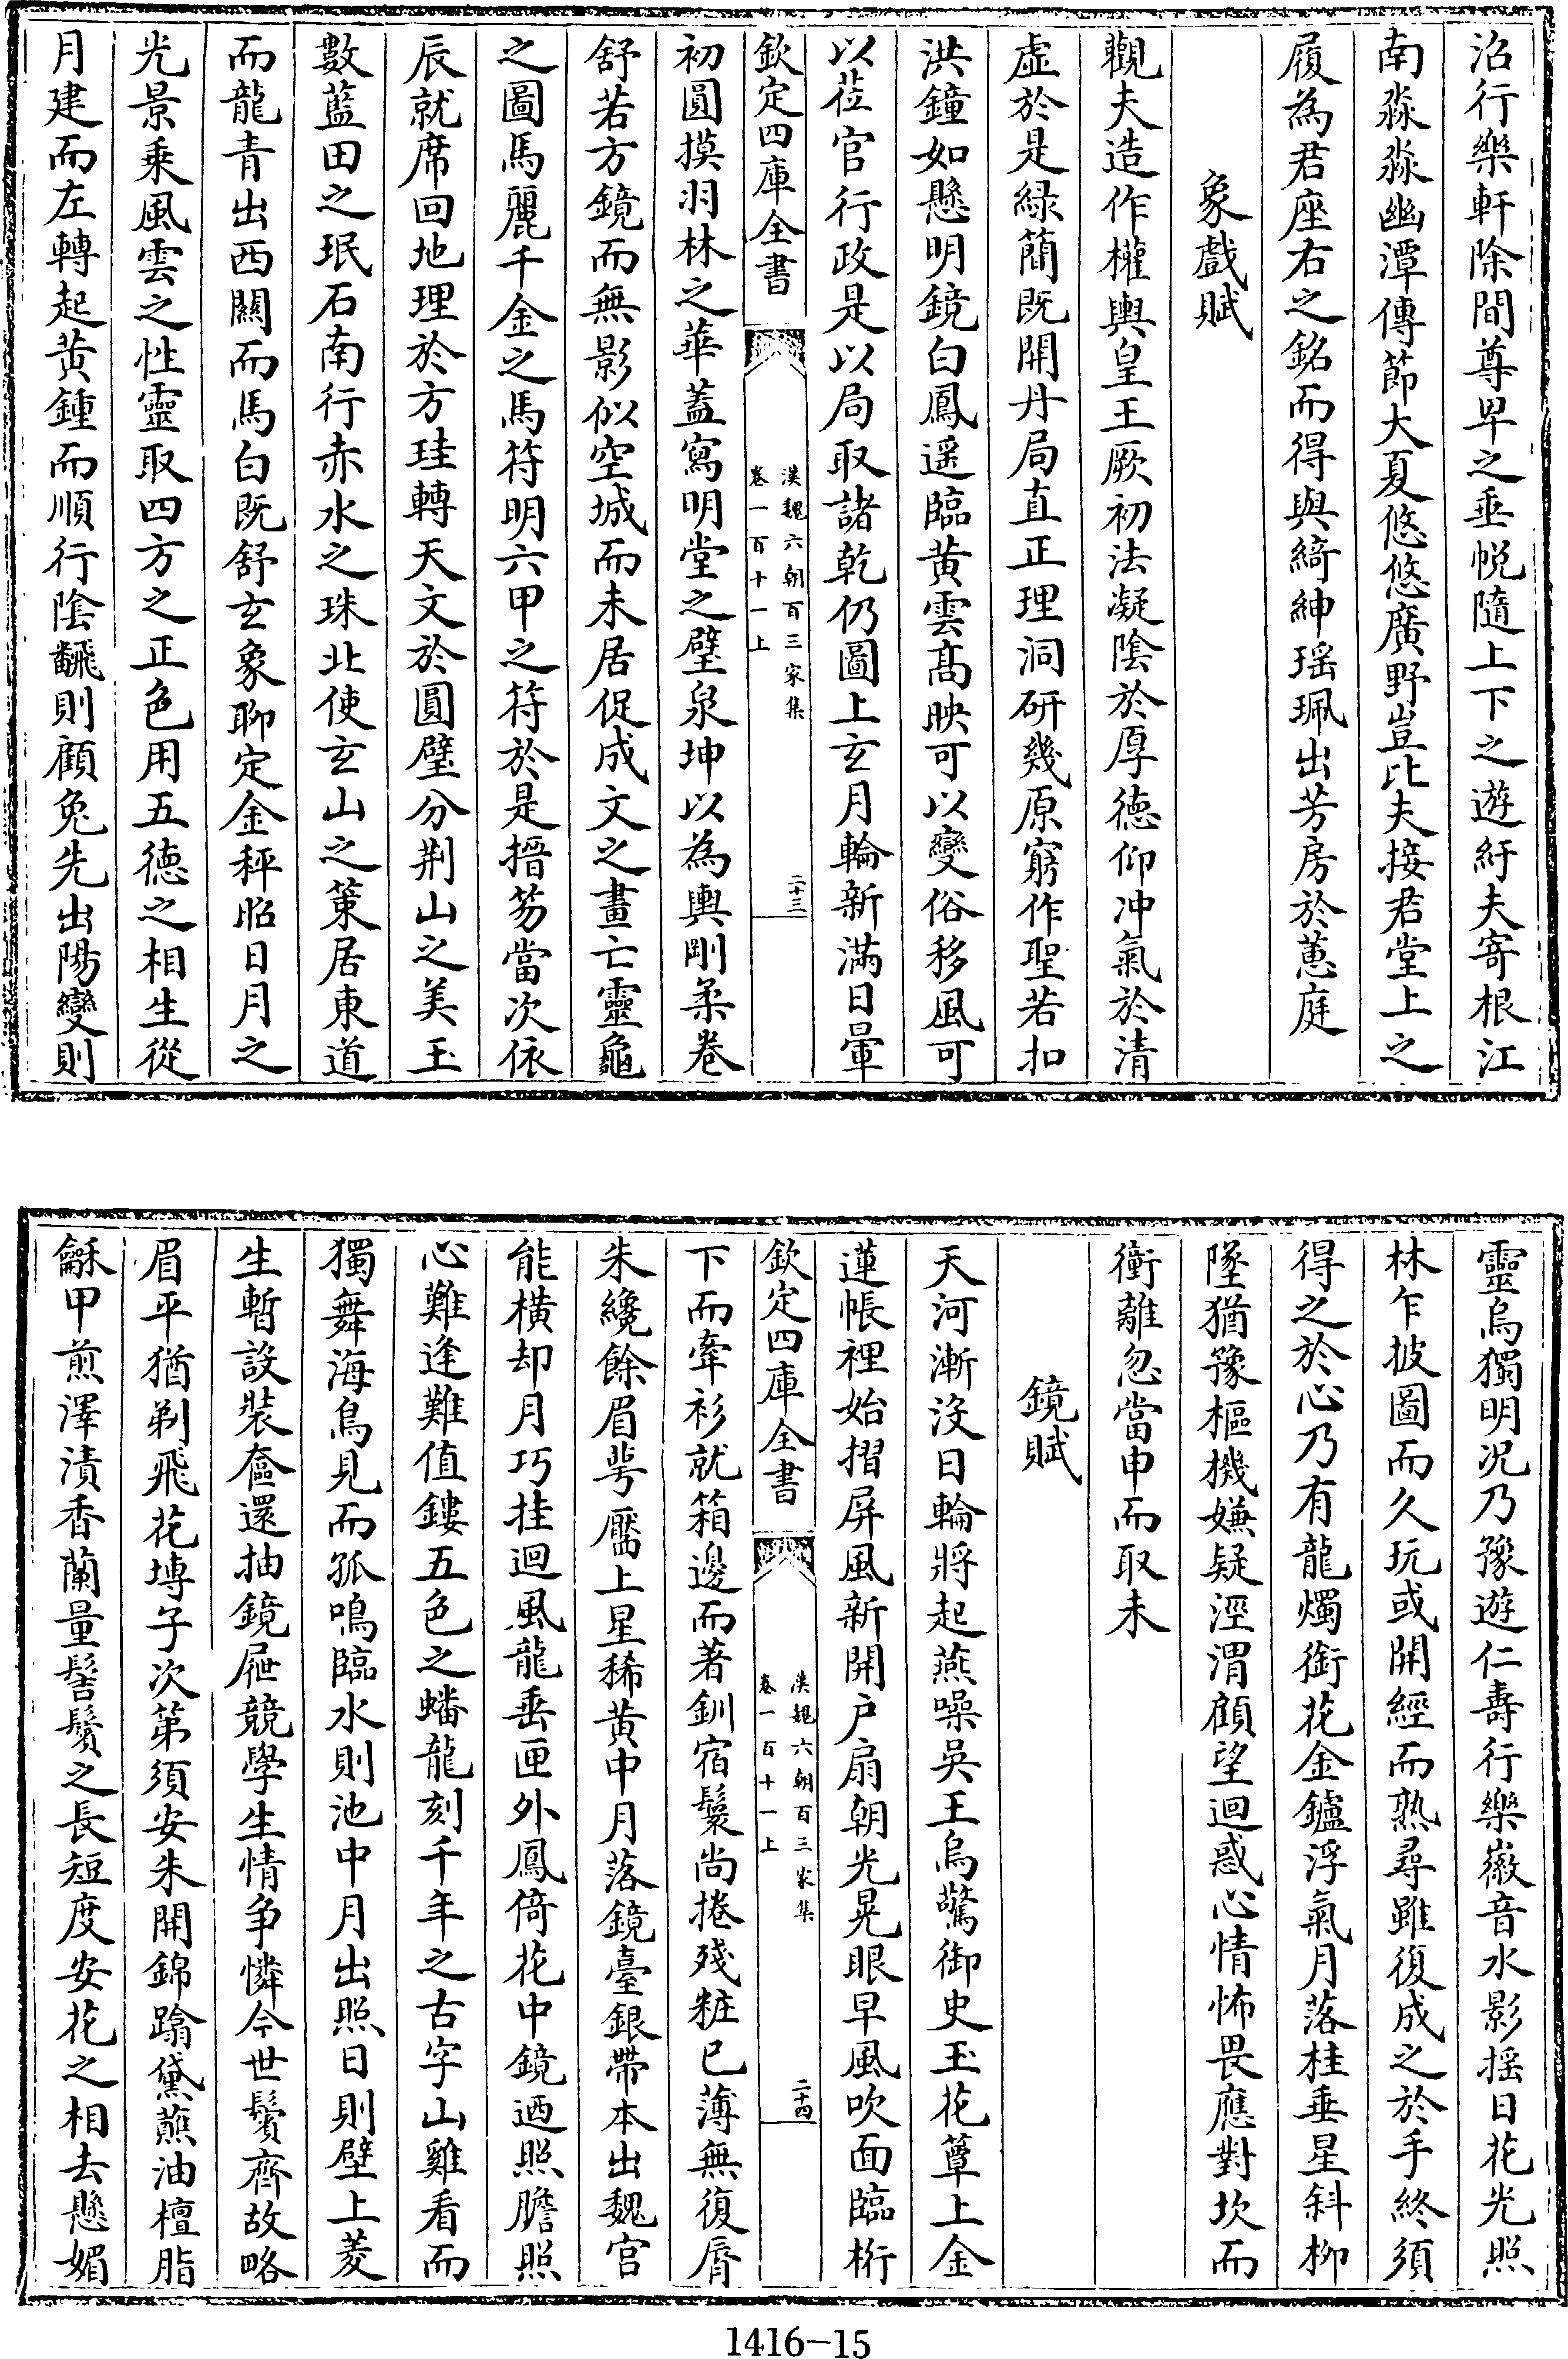 沿行樂軒除間尊卑之垂帨隨上下之遊紆夫寄根江
南淼淼幽潭傳節大夏悠悠廣野豈比夫接君堂上之
履為君座右之銘而得與綺紳瑶珮出芳房於蕙庭
象戲賦
觀夫造作權輿皇王厥初法凝陰於厚德仰冲氣於清
虚於是緑簡既開丹局直正理洞研幾原窮作聖若扣
洪鐘如懸明鏡白鳳遥臨黄雲髙映可以變俗移風可
以莅官行政是以局取諸乾仍圖上玄月輪新滿日暈
欽定四庫全書
漢魏六朝百三家集
卷一百十一上
二十三
初圓摸羽林之華蓋寫明堂之璧泉坤以為輿剛柔卷
舒若方鏡而無影似空城而未居促成文之畫亡靈龜
之圖馬麗千金之馬符明六甲之符於是搢笏當次依
辰就席回地理於方珪轉天文於圓璧分荆山之美玉
數藍田之珉石南行赤水之珠北使玄山之策居東道
而龍青出西關而馬白既舒玄象聊定金秤昭日月之
光景乘風雲之性靈取四方之正色用五德之相生從
月建而左轉起黄鍾而順行陰翻則顧兔先出陽變則
靈烏獨明况乃豫遊仁壽行樂徽音水影揺日花光照
林乍披圖而久玩或開經而熟尋雖復成之於手終須
得之於心乃有龍燭銜花金鑪浮氣月落桂垂星斜柳
墜猶豫樞機嫌疑涇渭顧望迴惑心情怖畏應對坎而
衝離忽當申而取未
鏡賦
天河漸沒日輪將起燕噪吳王烏驚御史玉花簟上金
蓮帳裡始摺屏風新開户扇朝光晃眼早風吹面臨桁
欽定四庫全書
漢魏六朝百三家集
卷一百十一上
二十四
下而牽衫就箱邊而著釧宿鬟尚捲殘粧已薄無復脣
朱纔餘眉萼靨上星稀黄中月落鏡臺銀帶本出魏宫
能横却月巧挂迴風龍垂匣外鳳倚花中鏡迺照膽照
心難逢難值鏤五色之蟠龍刻千年之古字山雞看而
獨舞海鳥見而孤鳴臨水則池中月出照日則壁上菱
生暫設裝奩還抽鏡屉競學生情争憐今世鬢齊故略
眉平猶剃飛花塼子次第須安朱開錦蹹黛蘸油檀脂
龢甲煎澤漬香蘭量髻鬢之長短度安花之相去懸媚
1416-15